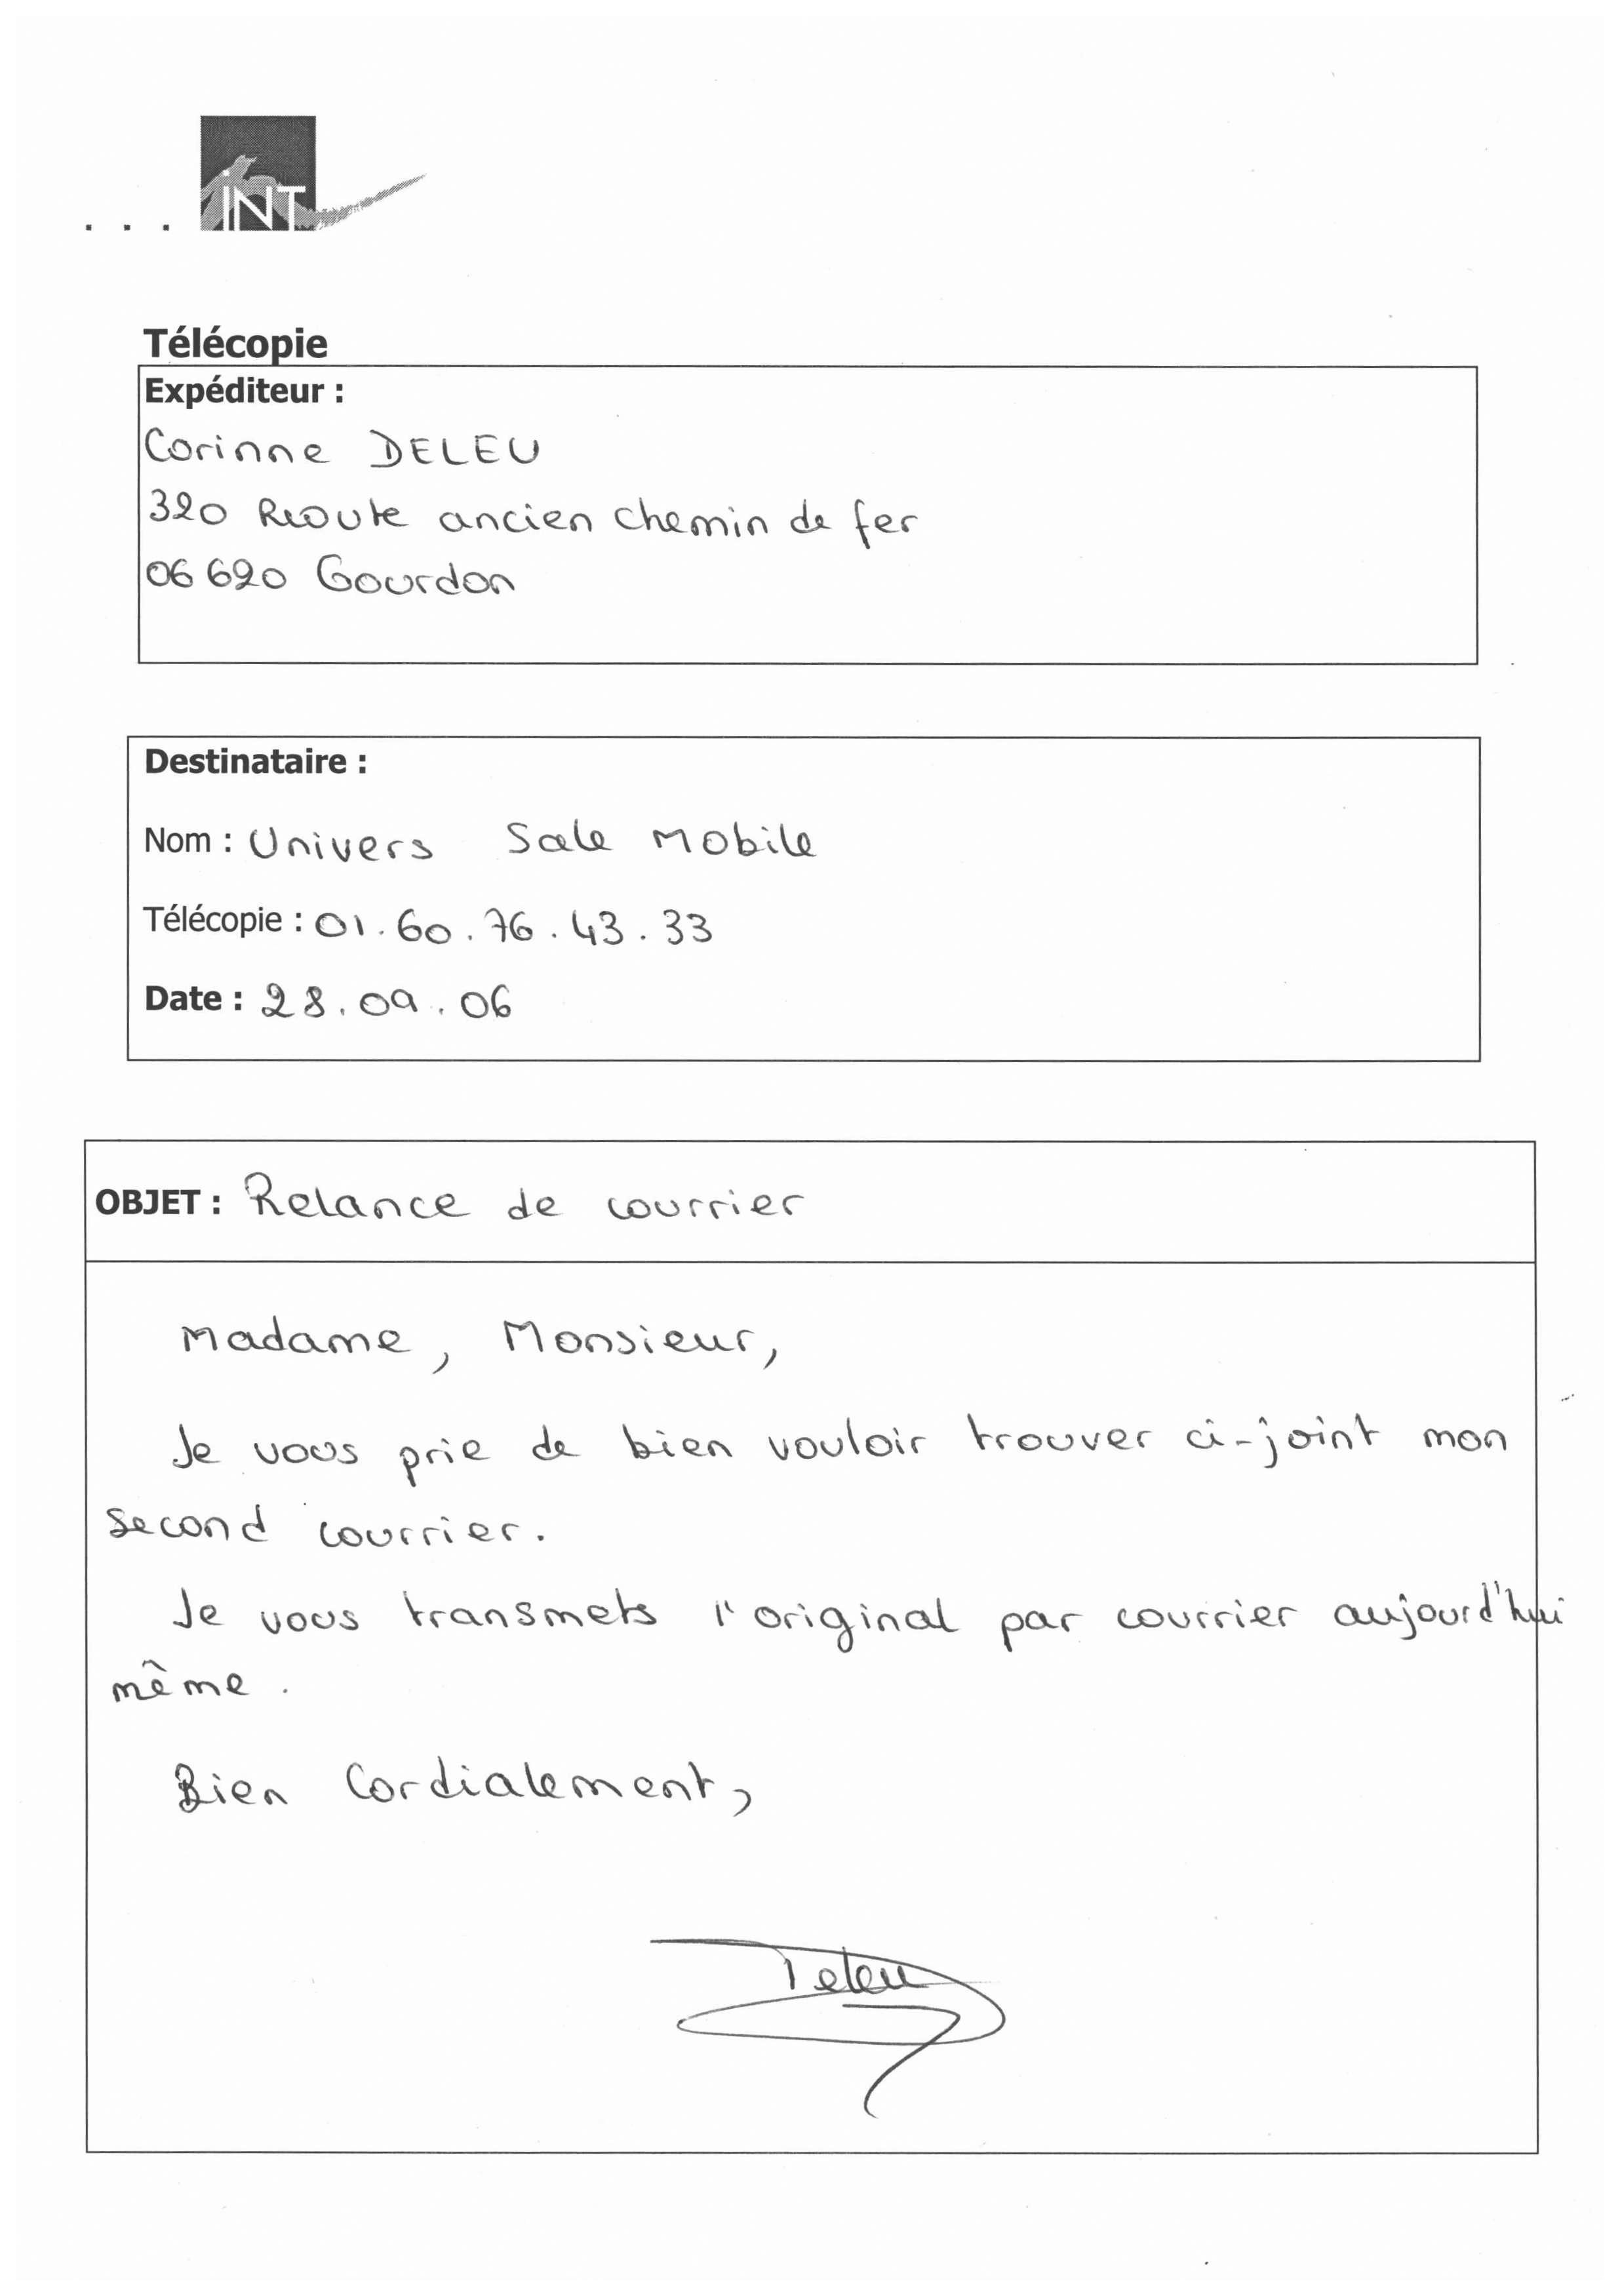 . . . iNT
Télécopie
Expéditeur :
Corinne DELEU
320 Route ancien chemin de fer
06 620 Gourdon
Destinataire :
Nom : Univers Sale Mobile
Télécopie : 01.60.76.43.33
Date : 28.09.06
OBJET : Relance de courrier
Madame, Monsieur,
Je vous prie de bien vouloir trouver ci-joint mon
second courrier.
Je vous transmets l'original par courrier aujourd'hui
même.
Bien Cordialement,
Deleu